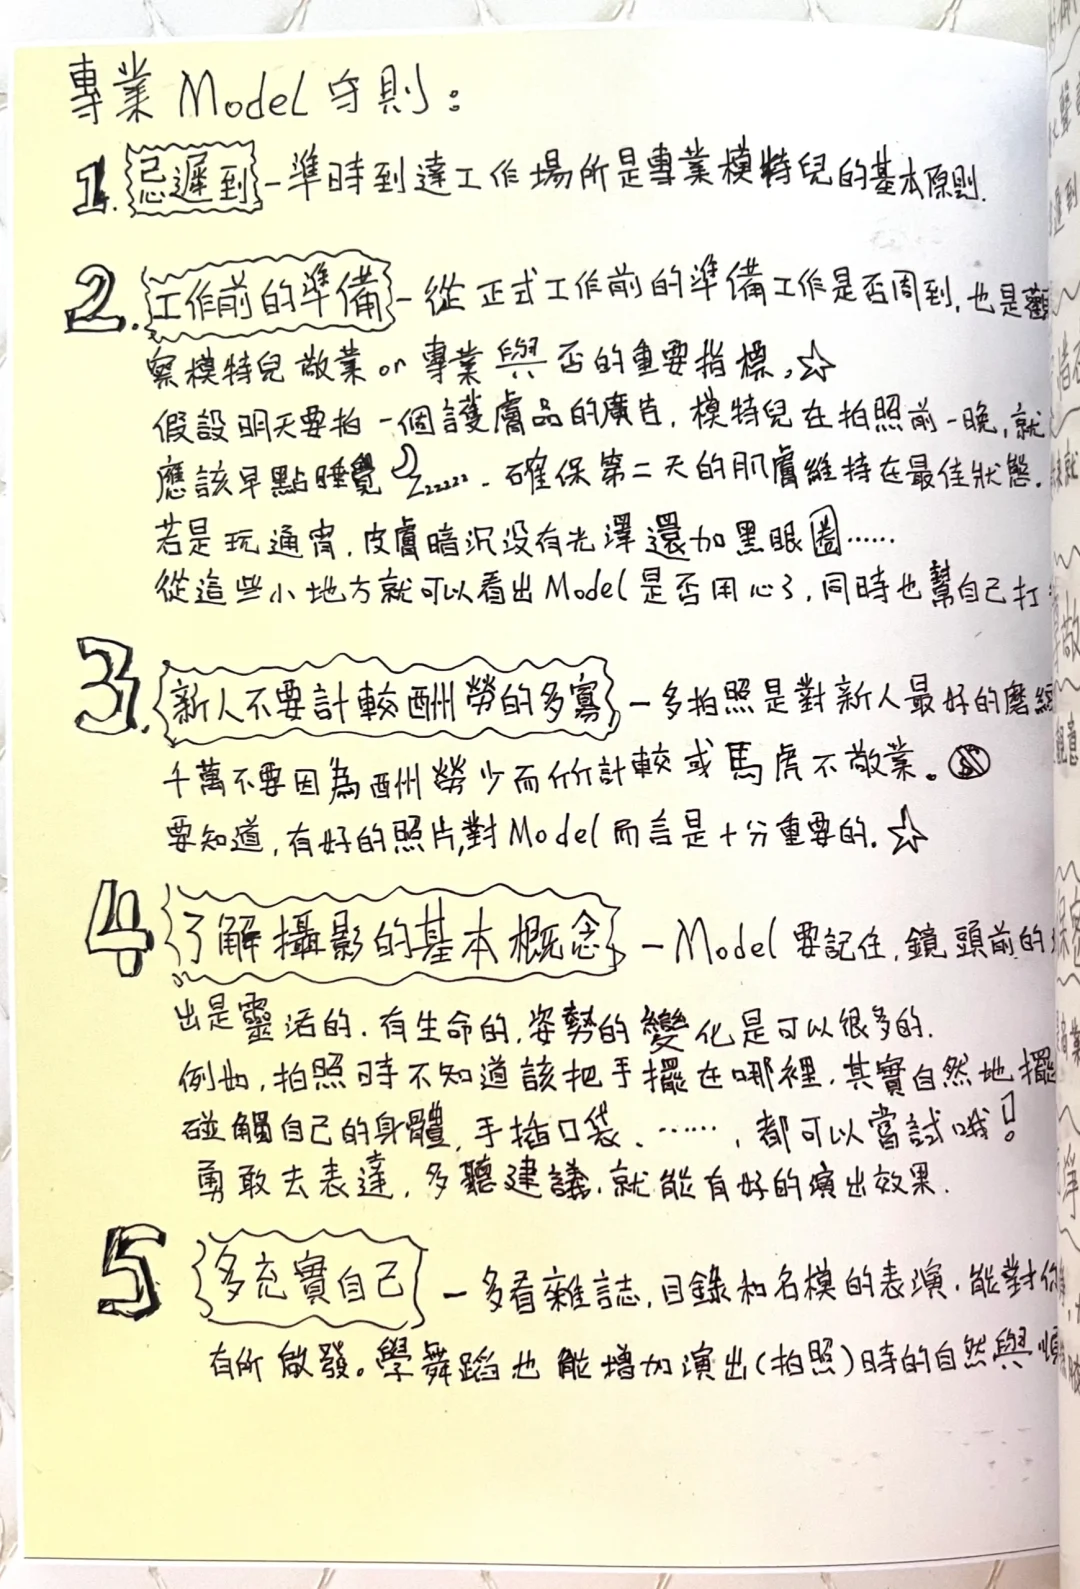 專業 Model 守則：
1. 忌遲到 - 準時到達工作場所是專業模特兒的基本原則.
2. 工作前的準備 - 從正式工作前的準備工作是否周到,也是觀
察模特兒敬業 or 專業與否的重要指標。☆
假設明天要拍一個護膚品的廣告,模特兒在拍照前一晚,就
應該早點睡覺 zzzzz. 確保第二天的肌膚維持在最佳狀態.
若是玩通宵,皮膚暗沉沒有光澤還加黑眼圈……
從這些小地方就可以看出 Model 是否用心了,同時也幫自己打
3. 新人不要計較酬勞的多寡 - 多拍照是對新人最好的磨
千萬不要因為酬勞少而斤斤計較或馬虎不敬業。
要知道,有好的照片,對 Model 而言是十分重要的.☆
4 了解攝影的基本概念 - Model 要記住,鏡頭前的
出是靈活的.有生命的,姿勢的變化是可以很多的.
例如,拍照時不知道該把手擺在哪裡,其實自然地擺
碰觸自己的身體,手插口袋、……,都可以嘗試哦!
勇敢去表達,多聽建議,就能有好的演出效果.
5 多充實自己 - 多看雜誌,目錄和名模的表演,能對你
有所啟發。學舞蹈也能增加演出(拍照)時的自然與